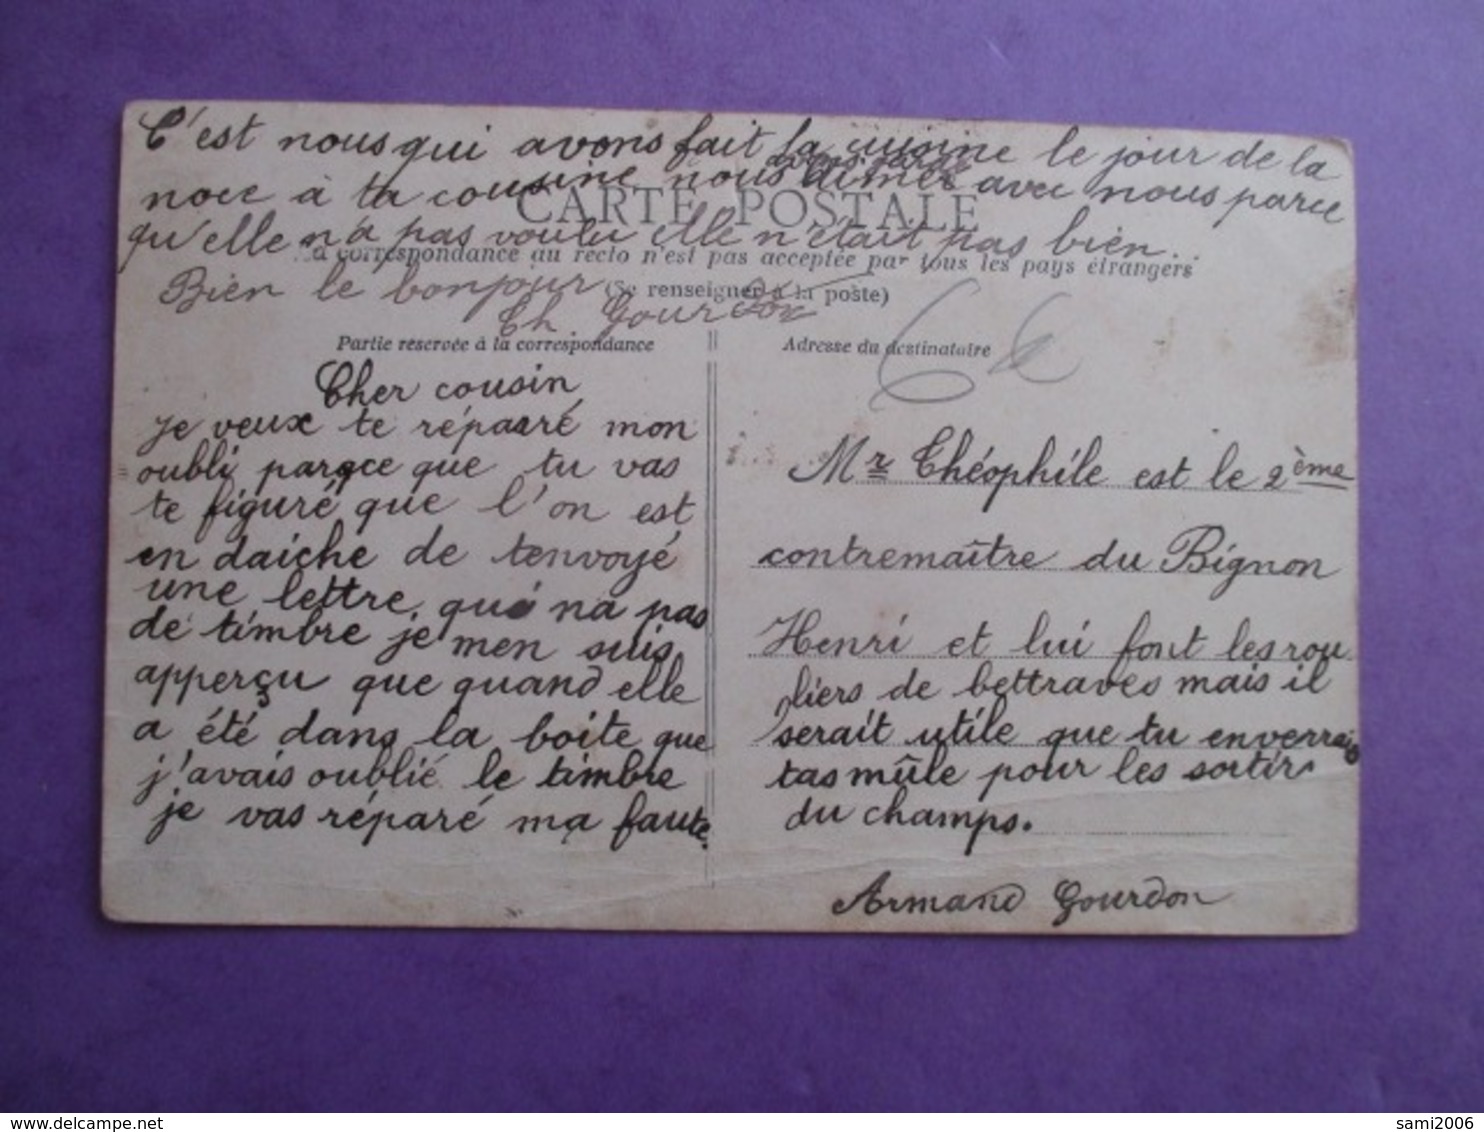 C'est nous qui avons fait la cuisine le jour de la
noce à ta cousine nous avec nous parce
qu'elle n'a pas voulu elle n'était pas bien.
CARTE POSTALE
La correspondance au recto n'est pas acceptée par tous les pays étrangers
Bien le bonjour
(Se renseigner à la poste)
Ch Gourdon
Partie réservée à la correspondance
Adresse du destinataire
Cher cousin
je veux te réparré mon
oubli parce que tu vas
te figuré que l'on est
en daiche de tenvoyé
une lettre qui na pas
de timbre je men suis
apperçu que quand elle
a été dans la boite que
j'avais oublié le timbre
je vas réparé ma faute.
Mr Théophile est le 2ème
contremaître du Bignon
Henri et lui font les rou
liers de bettraves mais il
serait utile que tu enverrais
tas mûle pour les sortir
du champs.
Armand Gourdon
delcampe.net
sami2006